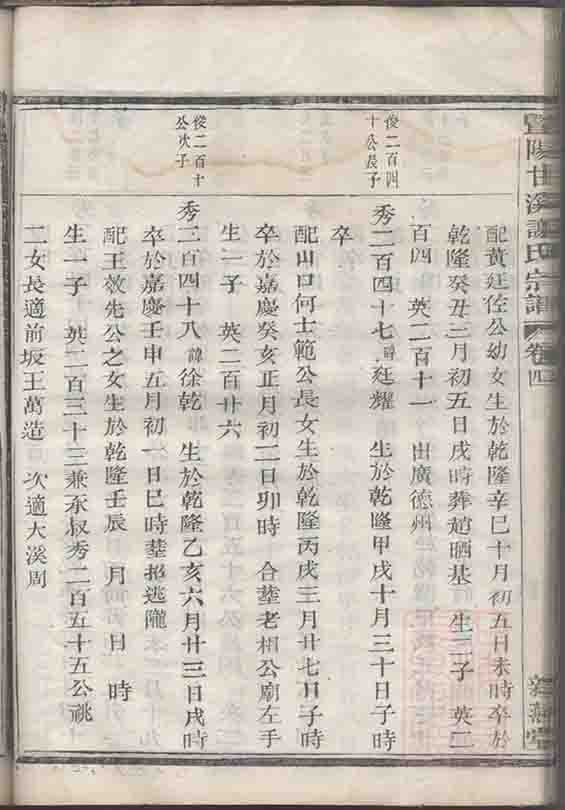 暨陽甘溪謝氏宗譜 卷四
配黃廷佐公幼女生於乾隆辛巳十月初五日未時卒於
乾隆癸丑三月初五日戌時葬趙晒基 生二子 英二
百四 英二百十一 出廣德州
俊二百四
十公長子
秀二百四十七諱廷耀 生於乾隆甲戌十月三十日子時
卒
配山口何士範公長女生於乾隆丙戌三月廿七日子時
卒於嘉慶癸亥正月初二日卯時 合塟老相公廟左手
生一子 英二百廿六
俊二百十
公次子
秀二百四十八諱徐乾 生於乾隆乙亥六月廿三日戌時
卒於嘉慶壬申五月初一日巳時塟招逃隴
配王效先公之女生於乾隆壬辰 月 日 時
生一子 英二百三十三兼承叔秀二百五十五公祧
二女長適前坂王萬造 次適大溪周